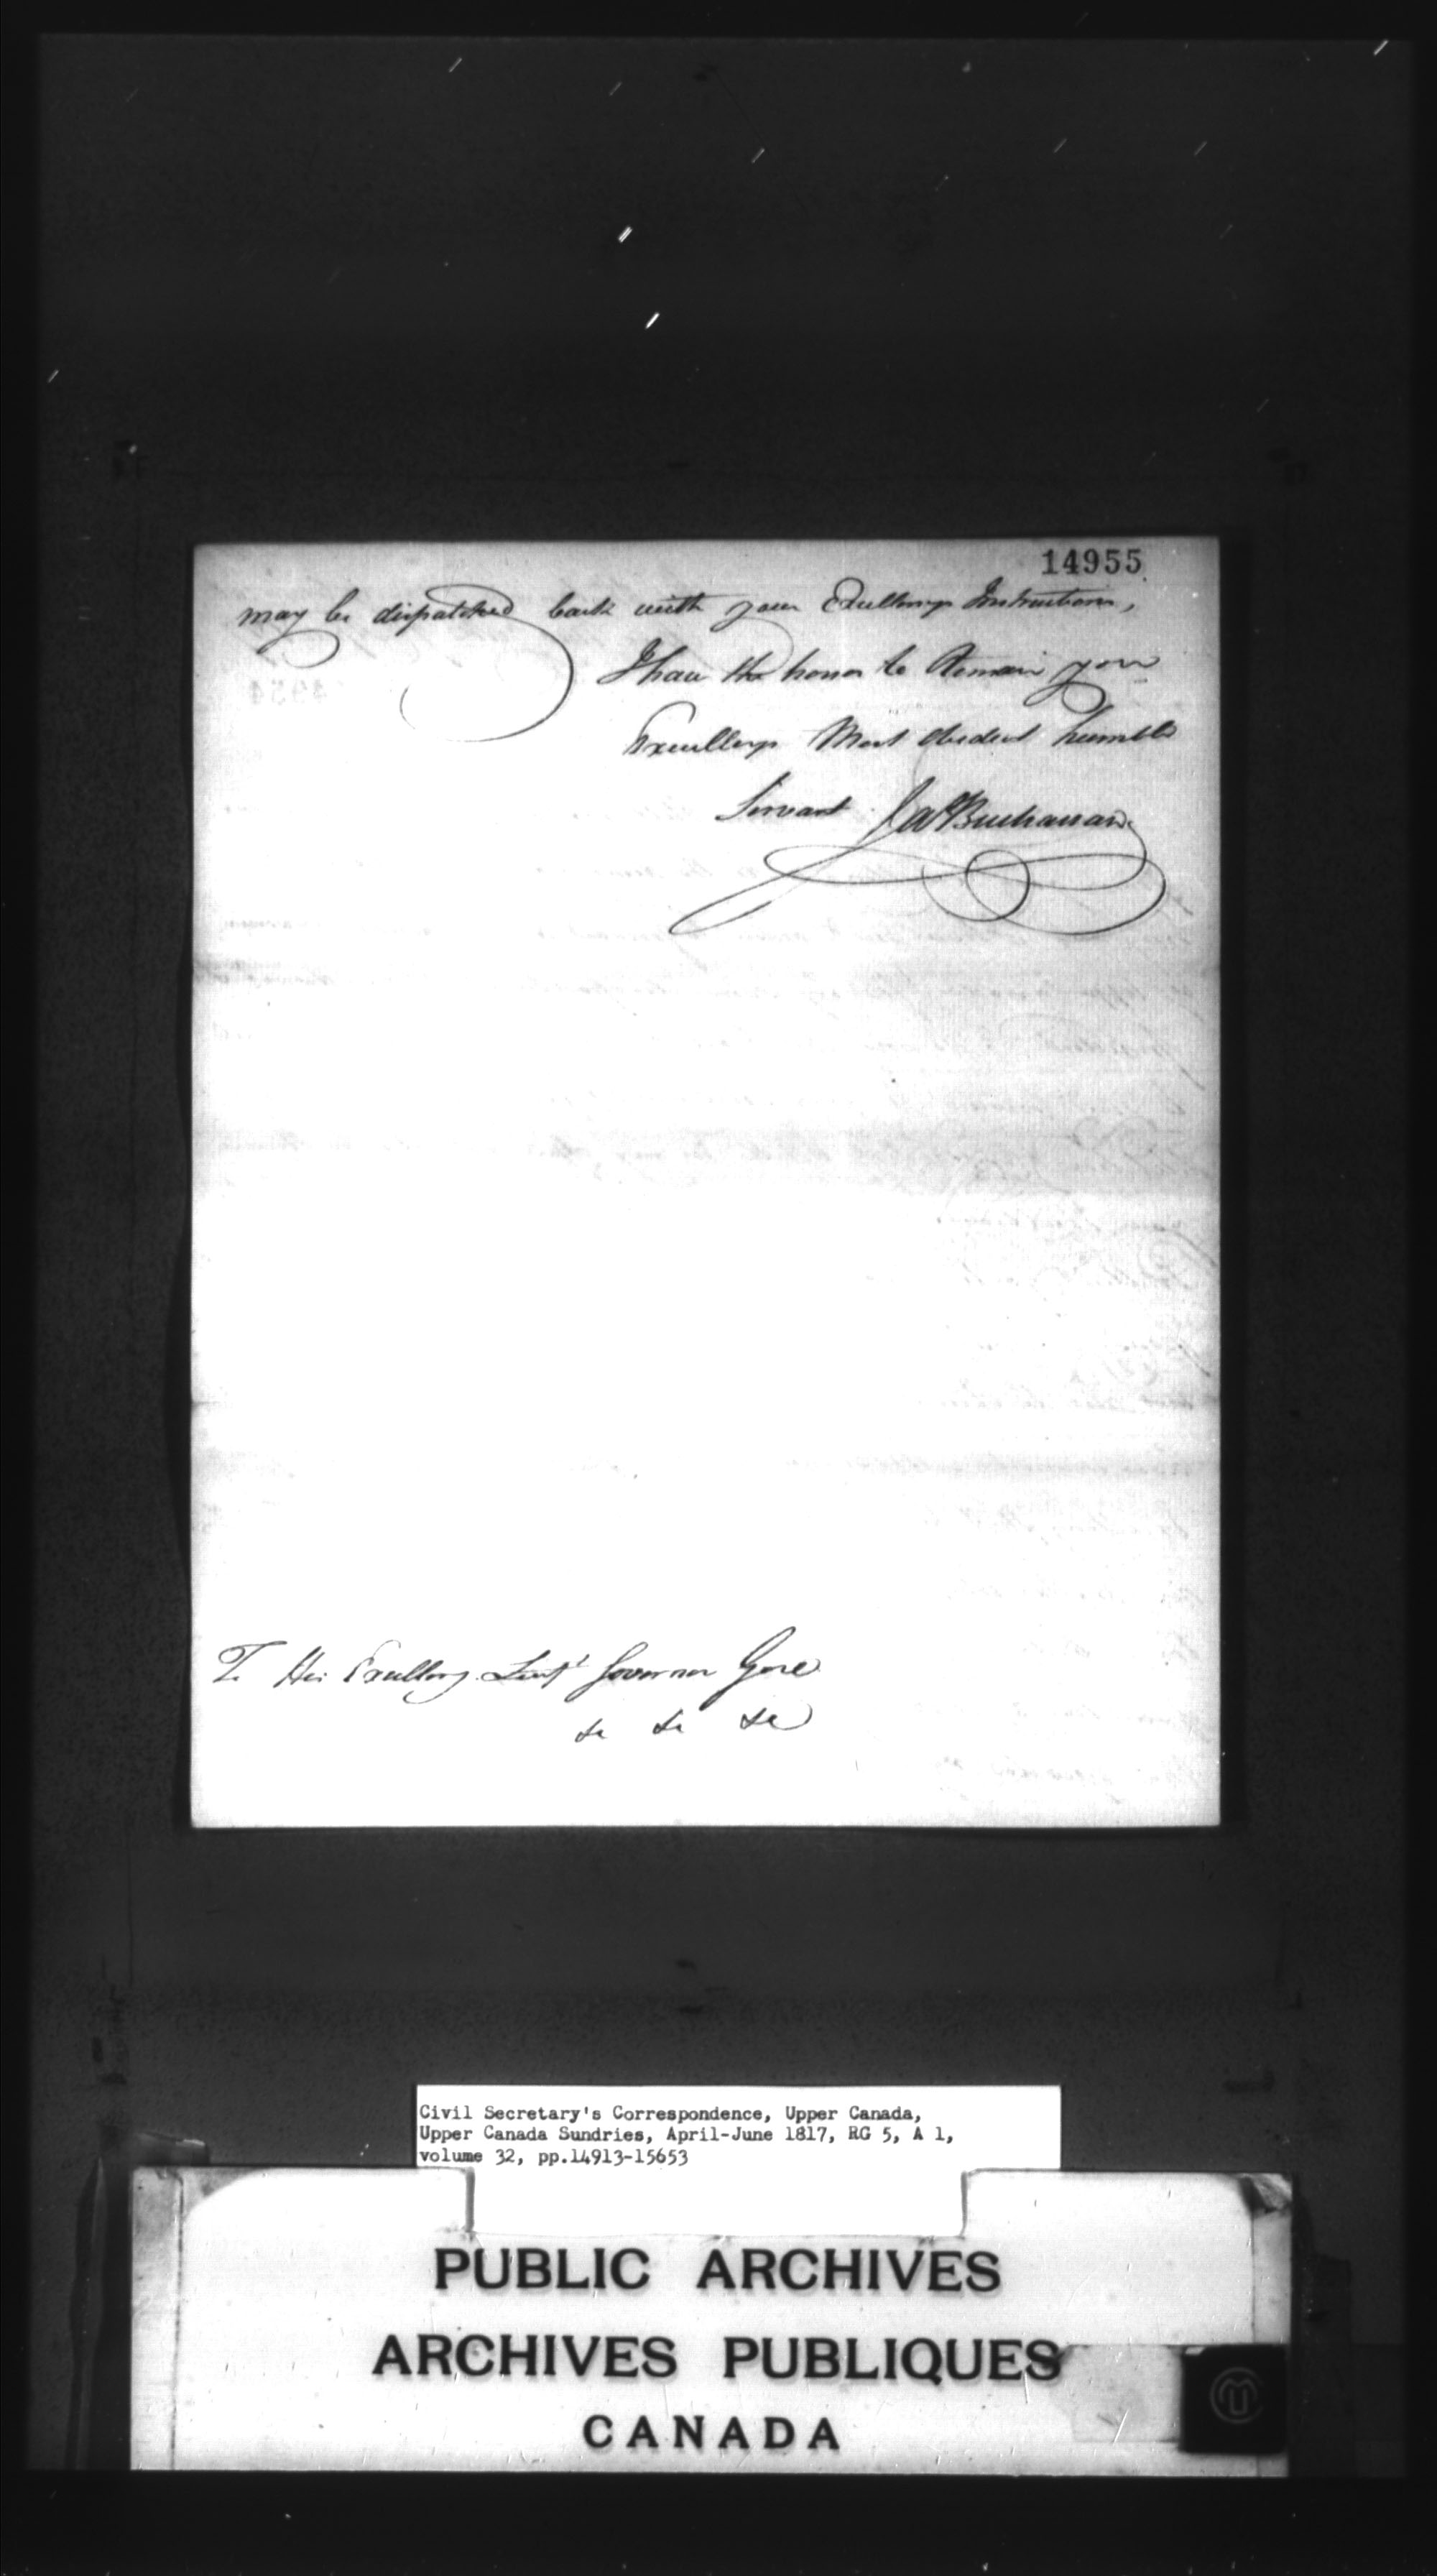 14955
may be dispatched back with your Excellencys Instructions,
I have the honor to Remain your
Excellencys Most Obedient humble
Servant Ja.s Buchanan
To His Excellency Lieut.t Governor Gore
&c &c &c
Civil Secretary's Correspondence, Upper Canada,
Upper Canada Sundries, April-June 1817, RG 5, A 1,
volume 32, pp.14913-15653
PUBLIC ARCHIVES
ARCHIVES PUBLIQUES
CANADA